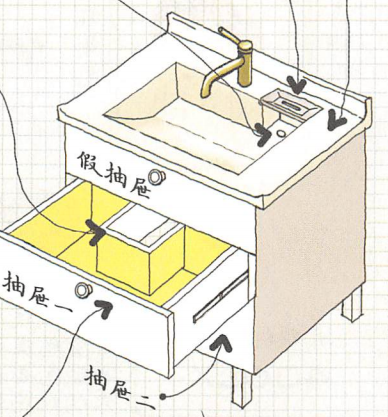 假抽屉
抽屉一
抽屉二